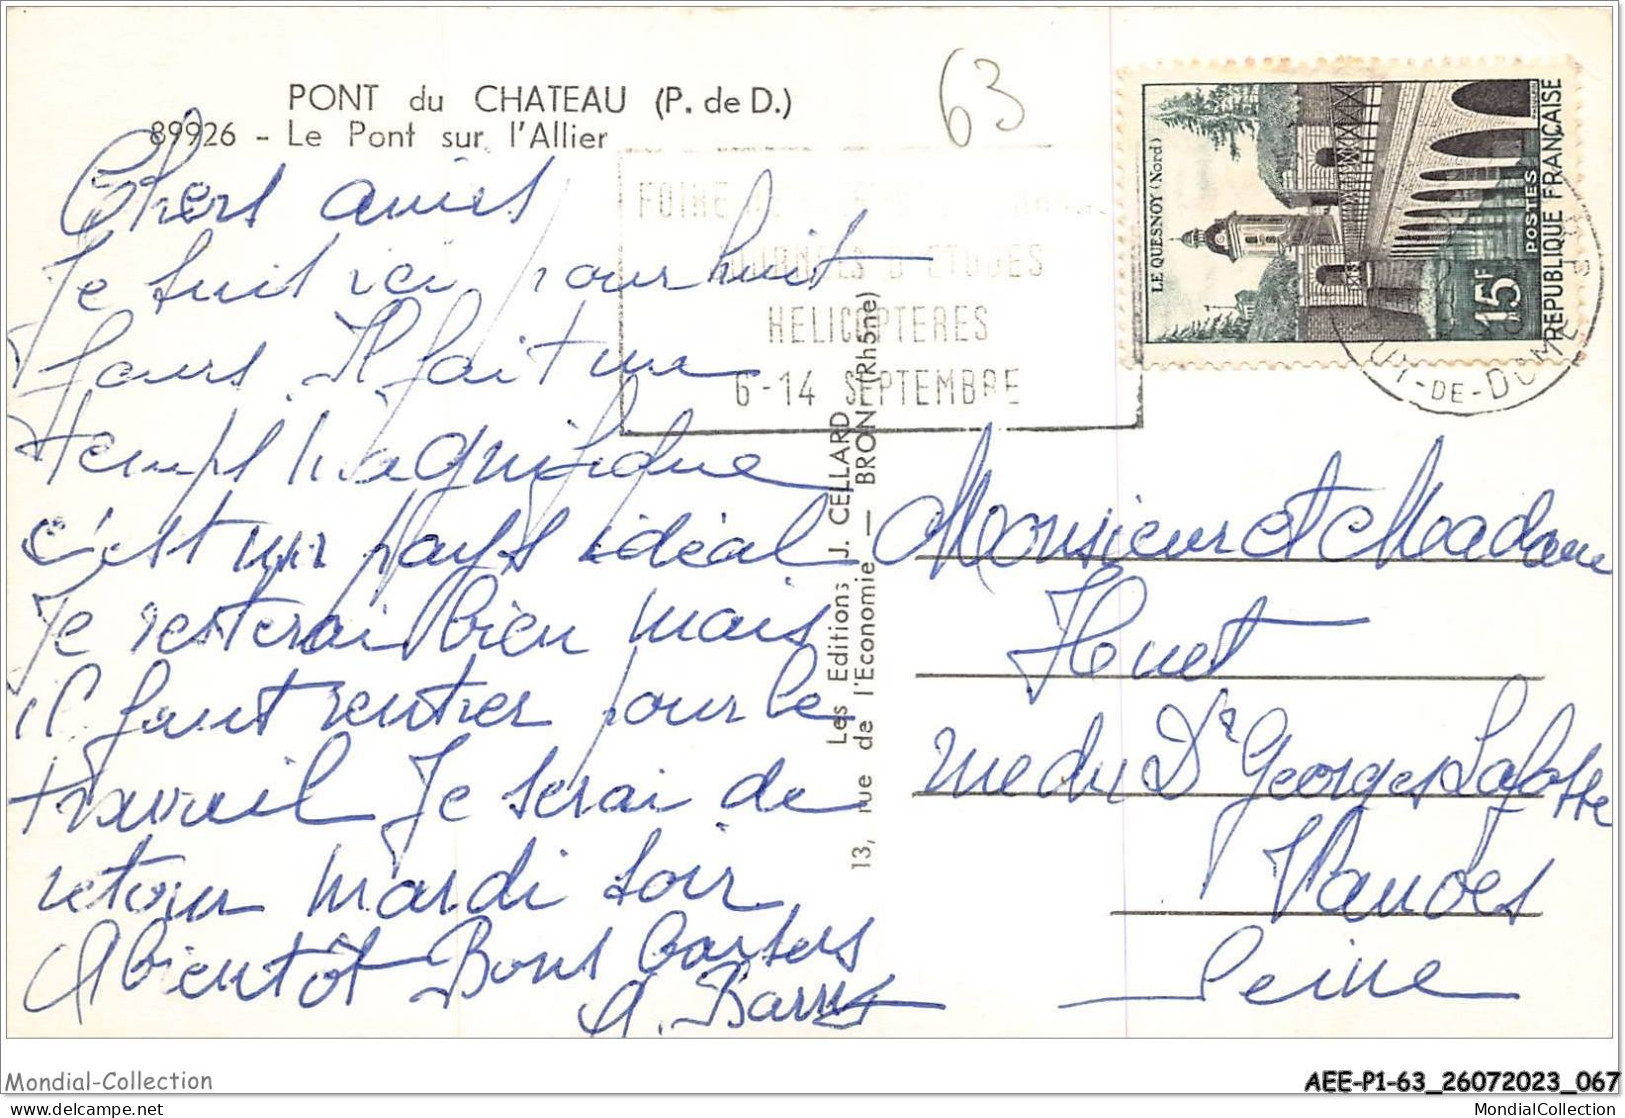 PONT du CHATEAU (P. de D.)
89926 - Le Pont sur l'Allier
63
Chers amis
Je suis ici pour huit
jours Il fait un
temps Magnifique
c'est un pays idéal
Je resterai bien mais
il faut rentrer pour le
travail Je serai de
retour Mardi soir
A bientôt Bons baisers
A. Barr
Les Editions J. CELLARD
13, rue de l'Economie — BRON (Rhône)
FOIRE DE
JOURNEES D'ETUDES
HELICOPTERES
6-14 SEPTEMBRE
LE QUESNOY (Nord)
15F
POSTES
REPUBLIQUE FRANÇAISE
PUY-DE-DOME
Monsieur et Madame
Huet
rue du Dr Georges Lafosse
Vanves
Seine
Mondial-Collection
AEE-P1-63_26072023_067
delcampe.net
MondialCollection